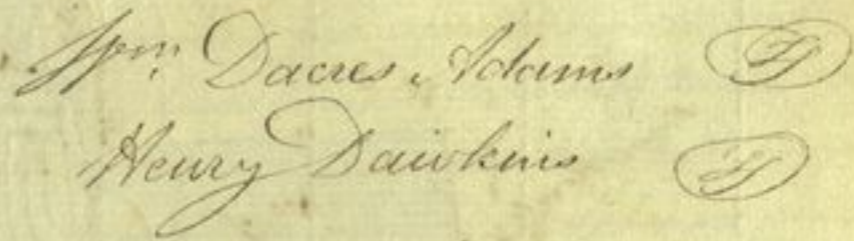 Wm. Dacres Adams
Henry Dawkins